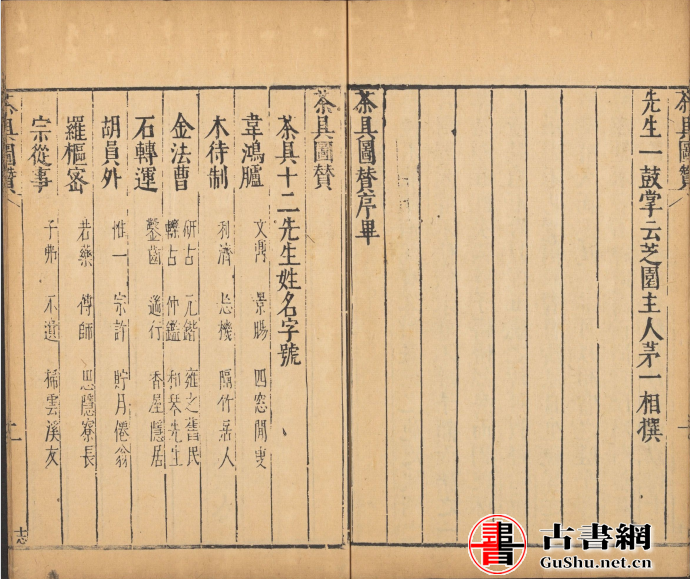 茶具圖贊
先生一鼓掌云芝園主人茅一相撰
茶具圖賛序畢
茶具圖贊
茶具十二先生姓名字號
韋鴻臚 文鼎 景腸 四窓閒叟
木待制 利濟 忘機 隔竹居人
金法曹 研古 元鍇 雍之舊民
轢古 仲鑑 和琴先生
石轉運 鑿齒 遄行 香屋隱居
胡員外 惟一 宗許 貯月僊翁
羅樞密 若藥 傅師 思隱寮長
宗從事 子弗 不遺 掃雲溪友
茶具圖贊
二
古書網
GuShu.net.cn